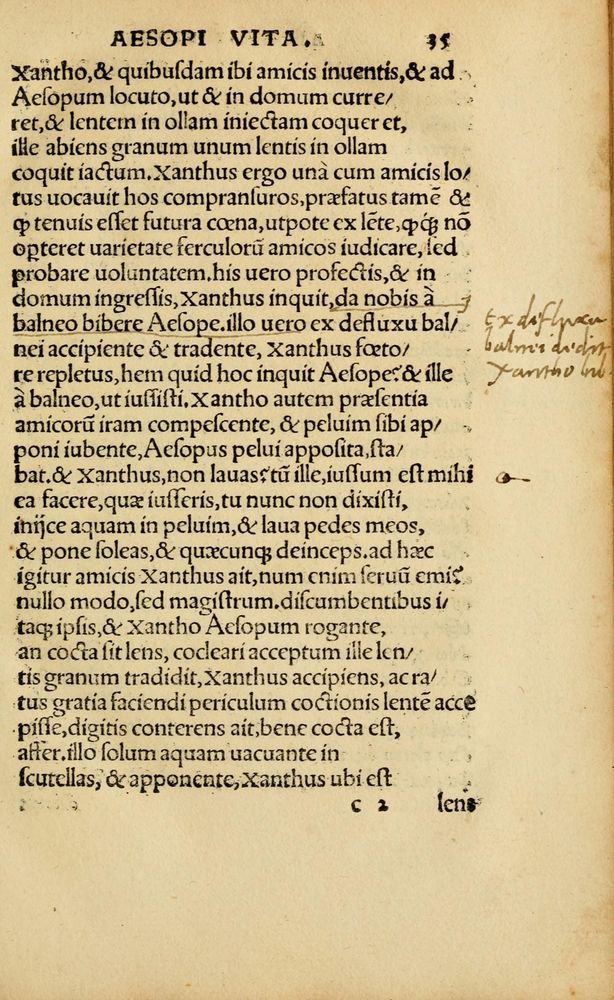 AESOPI VITA. 35
Xantho, & quibuſdam ibi amicis inuentis, & ad
Aeſopum locuto, ut & in domum curre/
ret, & lentem in ollam iniectam coquer et,
ille abiens granum unum lentis in ollam
coquit iactum. Xanthus ergo unà cum amicis lo/
tus uocauit hos compranſuros, præfatus tamē &
ꝙ tenuis eſſet futura cœna, utpote ex lēte, ꝙꝗ nō
oꝑteret uarietate ferculorū amicos iudicare, ſed
probare uoluntatem, his uero profectis, & in
domum ingreſſis, Xanthus inquit, da nobis à
balneo bibere Aeſope. illo uero ex defluxu bal/
nei accipiente & tradente, Xanthus fœto/
re repletus, hem quid hoc inquit Aeſope? & ille
à balneo, ut iuſſiſti. Xantho autem præſentia
amicorū iram compeſcente, & peluim ſibi ap/
poni iubente, Aeſopus pelui appoſita, ſta/
bat. & Xanthus, non lauas? tū ille, iuſſum eſt mihi
ea facere, quæ iuſſeris, tu nunc non dixiſti,
inijce aquam in peluim, & laua pedes meos,
& pone ſoleas, & quæcunqꝫ deinceps. ad hæc
igitur amicis Xanthus ait, num enim ſeruū emi?
nullo modo, ſed magiſtrum. diſcumbentibus i/
taqꝫ ipſis, & Xantho Aeſopum rogante,
an cocta ſit lens, cocleari acceptum ille len/
tis granum tradidit, Xanthus accipiens, ac ra/
tus gratia faciendi periculum coctionis lentē acce
piſſe, digitis conterens ait, bene cocta eſt,
affer. illo ſolum aquam uacuante in
ſcutellas, & apponente, Xanthus ubi eſt
c 2 lens
Ex defluxu
balnei dedit
Xantho